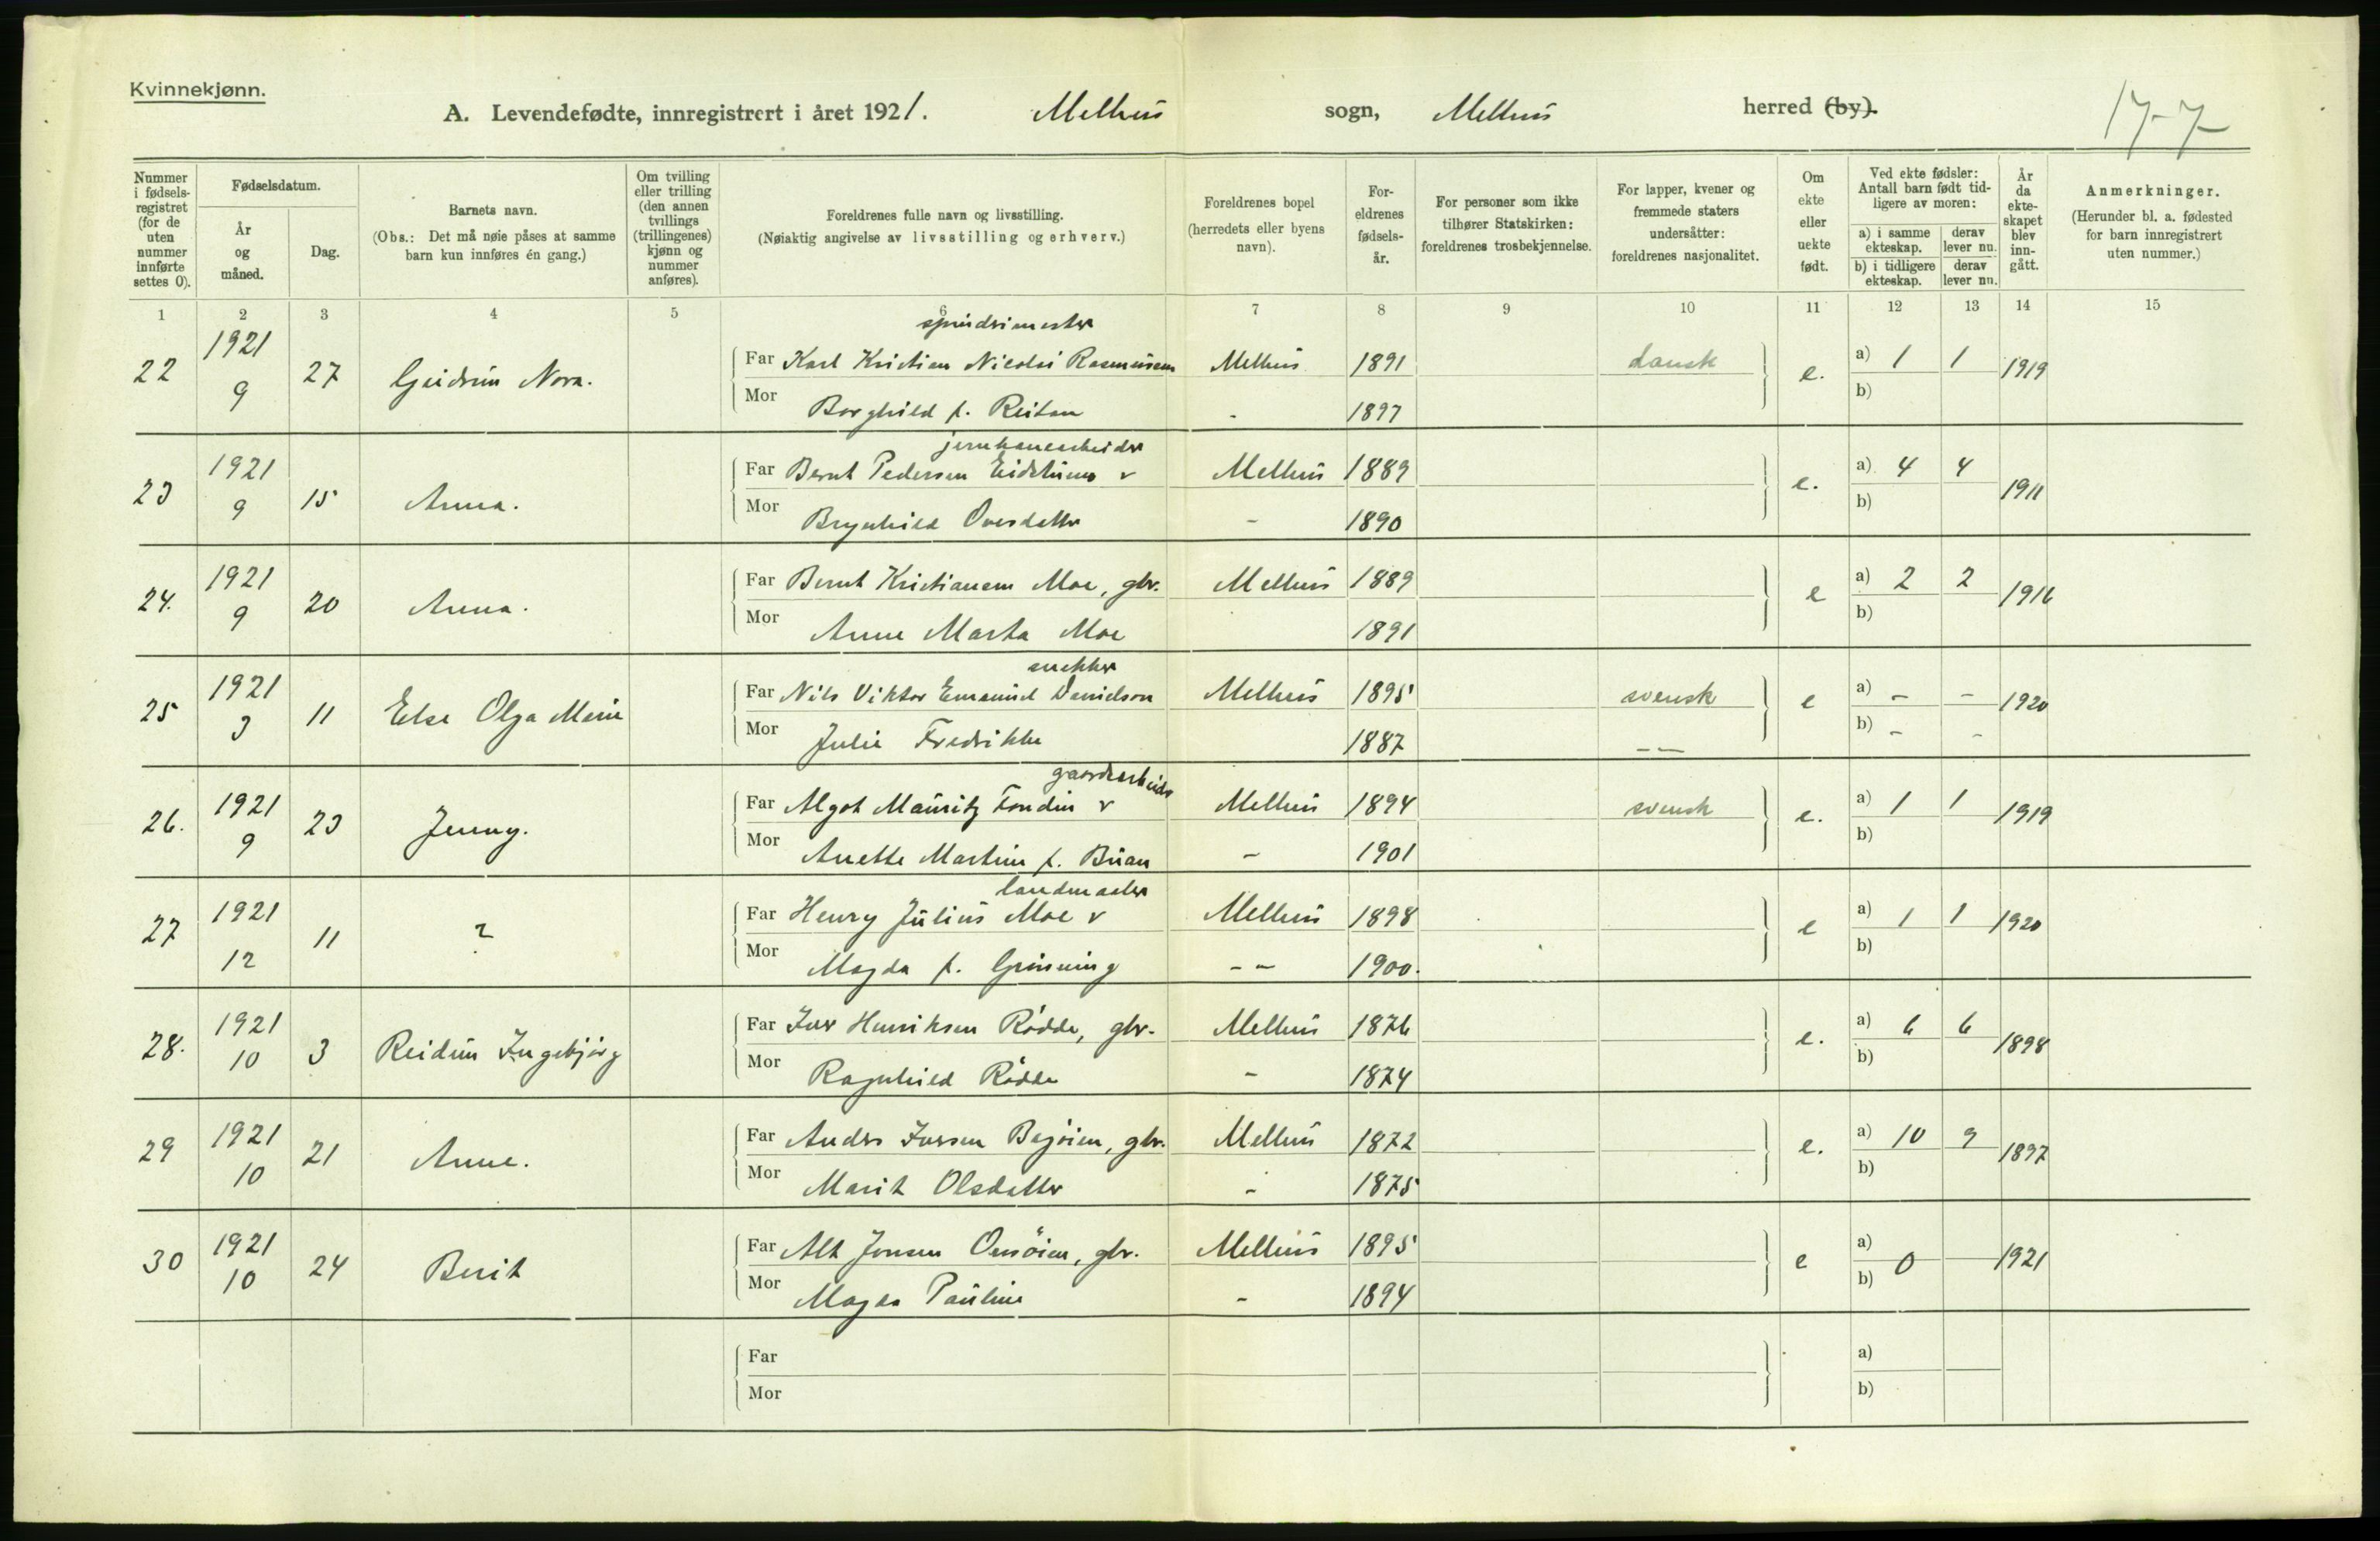 Kvinnekjønn.
A. Levendefødte, innregistrert i året 1921. Melhus sogn, Melhus herred (by).
17-7
Nummer i fødsels-registret (for de uten nummer innførte settes 0).
Fødselsdatum.
År og måned.
Dag.
Barnets navn.
(Obs.: Det må nøie påses at samme barn kun innføres én gang.)
Om tvilling eller trilling (den annen tvillings (trillingenes) kjønn og nummer anføres).
Foreldrenes fulle navn og livsstilling.
(Nøiaktig angivelse av livsstilling og erhverv.)
Foreldrenes bopel (herredets eller byens navn).
For-eldrenes fødsels-år.
For personer som ikke tilhører Statskirken: foreldrenes trosbekjennelse.
For lapper, kvener og fremmede staters undersåtter: foreldrenes nasjonalitet.
Om ekte eller uekte født.
Ved ekte fødsler: Antall barn født tid-ligere av moren:
a) i samme ekteskap. derav lever nu.
b) i tidligere ekteskap. derav lever nu.
År da ekte-skapet blev inn-gått.
Anmerkninger.
(Herunder bl. a. fødested for barn innregistrert uten nummer.)
1 2 3 4 5 6 7 8 9 10 11 12 13 14 15
22 1921 9 27 Gudrun Nora.
Far Karl Kristian Nicolai Rasmussen Melhus 1891 dansk e. a) 1 1 1919
Mor Borghild f. Reitan - 1897 b)
jernbanearbeider
23 1921 9 15 Anna.
Far Bernt Pedersen Eidstumo v Melhus 1889 e. a) 4 4 1911
Mor Brynhild Ovesdatter - 1890 b)
24. 1921 9 20 Anna.
Far Bernt Kristiansen Moe, gbr. Melhus 1889 e a) 2 2 1916
Mor Anne Marta Moe 1891 b)
snekker
25 1921 9 11 Else Olga Marie
Far Nils Viktor Emanuel Danielson Melhus 1895 svensk e a) - - 1920
Mor Julie Fredrikke 1887 -- b) - -
gaardsarbeider
26. 1921 9 23 Jenny.
Far Algot Mauritz Fondin v Melhus 1894 svensk e. a) 1 1 1919
Mor Anette Martine f. Buan - 1901 b)
landmaaler
27 1921 12 11 ?
Far Henry Julius Moe v Melhus 1898 e a) 1 1 1920
Mor Magda f. Grinning -- 1900. b)
28. 1921 10 3 Reidun Ingebjørg
Far Iver Henriksen Rødde, gbr. Melhus 1876 e. a) 6 6 1898
Mor Ragnhild Rødde - 1874 b)
29 1921 10 21 Anne.
Far Anders Iversen Bagøien, gbr. Melhus 1872 e. a) 10 9 1897
Mor Marit Olsdatter - 1875 b)
30 1921 10 24 Berit
Far Jonsen Onsöien, gbr. Melhus 1895 e a) 1921
Mor Magda Pauline - 1894 b) 0
Far a)
Mor b)